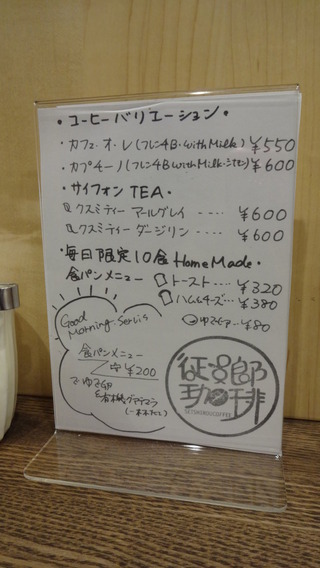 ・コーヒーバリエーション・
・カフェ・オ・レ(フレンチB・with Milk) ¥550
・カプチーノ(フレンチB with Milk・シナモン) ¥600
・サイフォンTEA・
クスミティー アールグレイ ---- ¥600
クスミティー ダージリン ---- ¥600
・毎日限定10食 Home Made・
食パンメニュー
トースト ---- ¥320
ハムチーズ… ¥380
ゆでタマゴ ¥80
Good Morning-Servis
食パンメニュー
¥200
で ゆで卵
有機グアテマラ
征四郎
珈琲
SEISHIROUCOFFEE